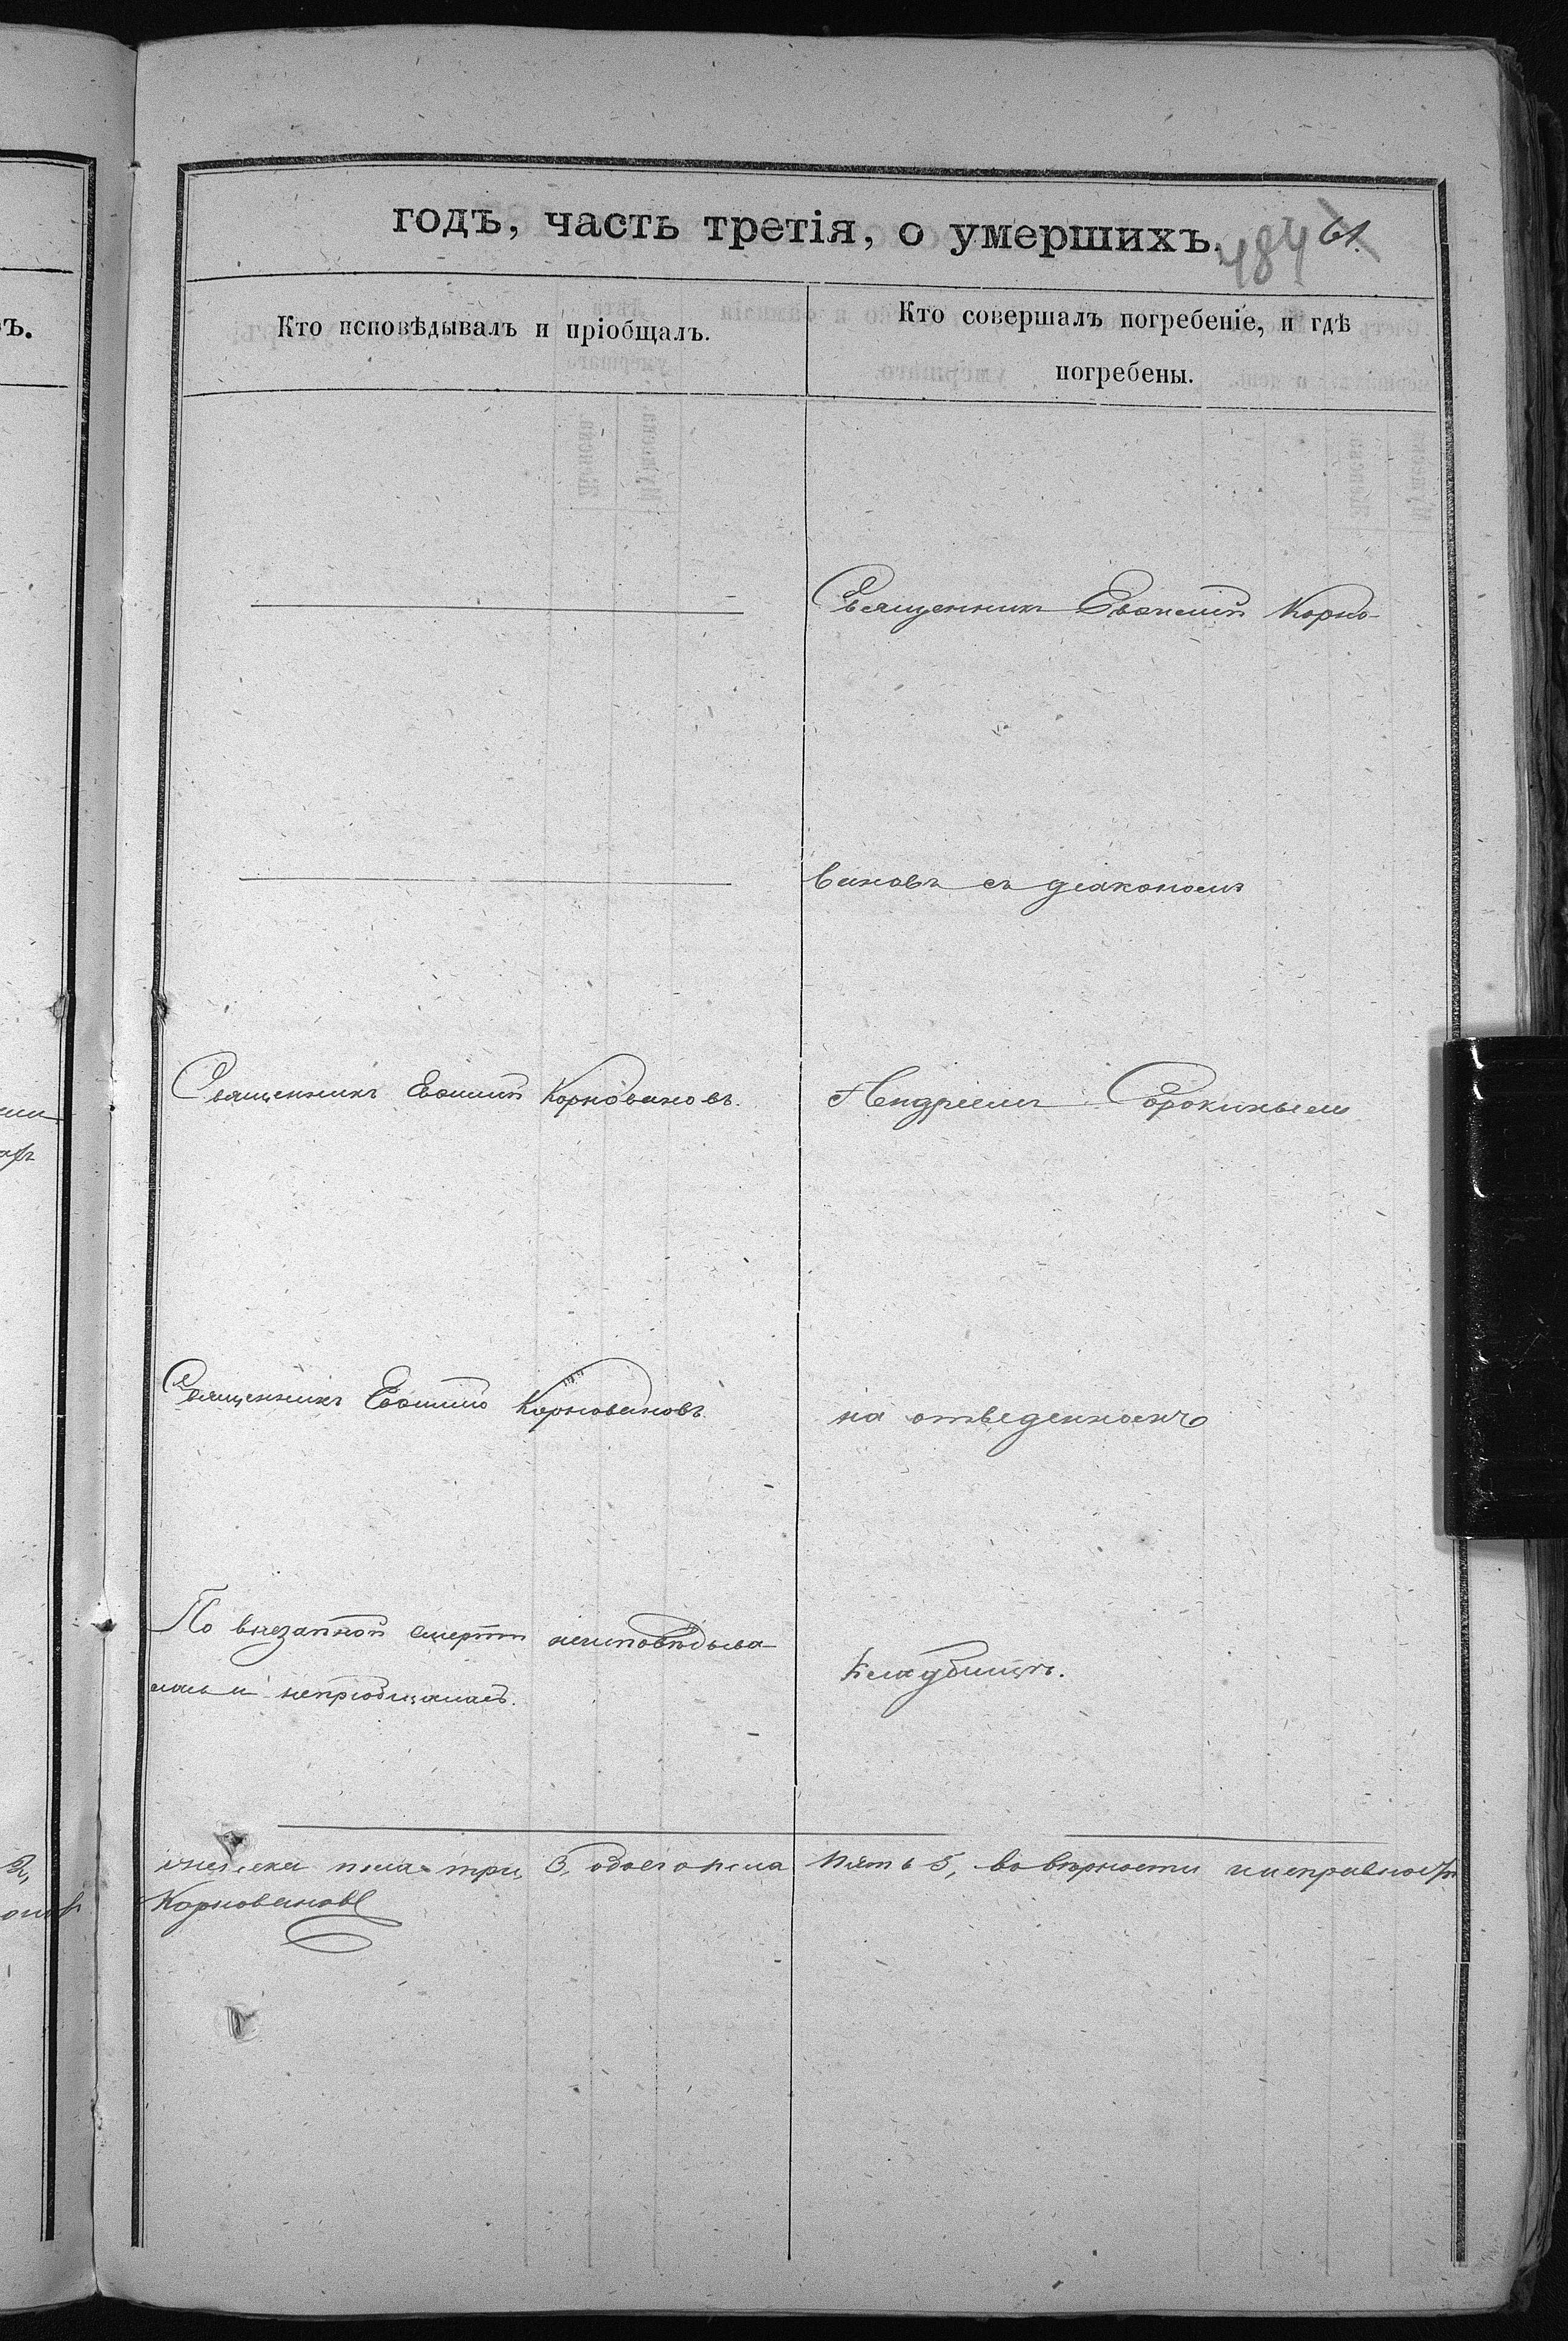 годъ, часть третія, о умершихъ.
484 61.
Кто исповѣдывалъ и пріобщалъ.
Кто совершалъ погребеніе, и гдѣ
погребены.
Священникъ Евѳимій Корно-
вановъ съ діакономъ
Священникъ Евѳимій Корновановъ.
Андреемъ Сорокинымъ
Священникъ Евѳимій Корновановъ.
на отведенномъ
По внезапной смерти неисповѣдыва
лась и непріобщалась.
кладбищѣ.
женска пола три, 3, обоего пола пять 5, вовѣрности и исправности
Корновановъ
ъ.